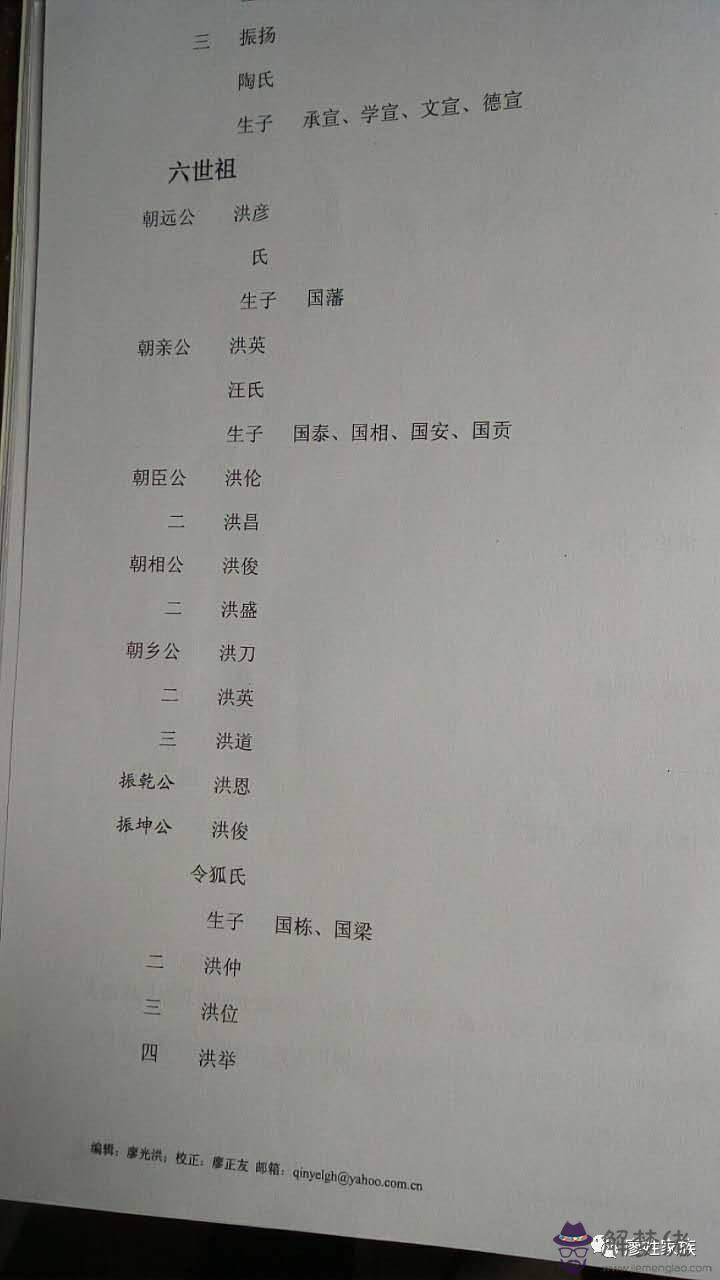 三 振扬
陶氏
生子 承宣、学宣、文宣、德宣
六世祖
朝远公 洪彦
氏
生子 国藩
朝亲公 洪英
汪氏
生子 国泰、国相、国安、国贡
朝臣公 洪伦
二 洪昌
朝相公 洪俊
二 洪盛
朝乡公 洪刀
二 洪英
三 洪道
振乾公 洪恩
振坤公 洪俊
令狐氏
生子 国栋、国梁
二 洪仲
三 洪位
四 洪举
编辑：廖光洪；校正：廖正友 邮箱：qinyelgh@yahoo.com.cn
廖姓家族
解梦佬
www.jiemenglao.com